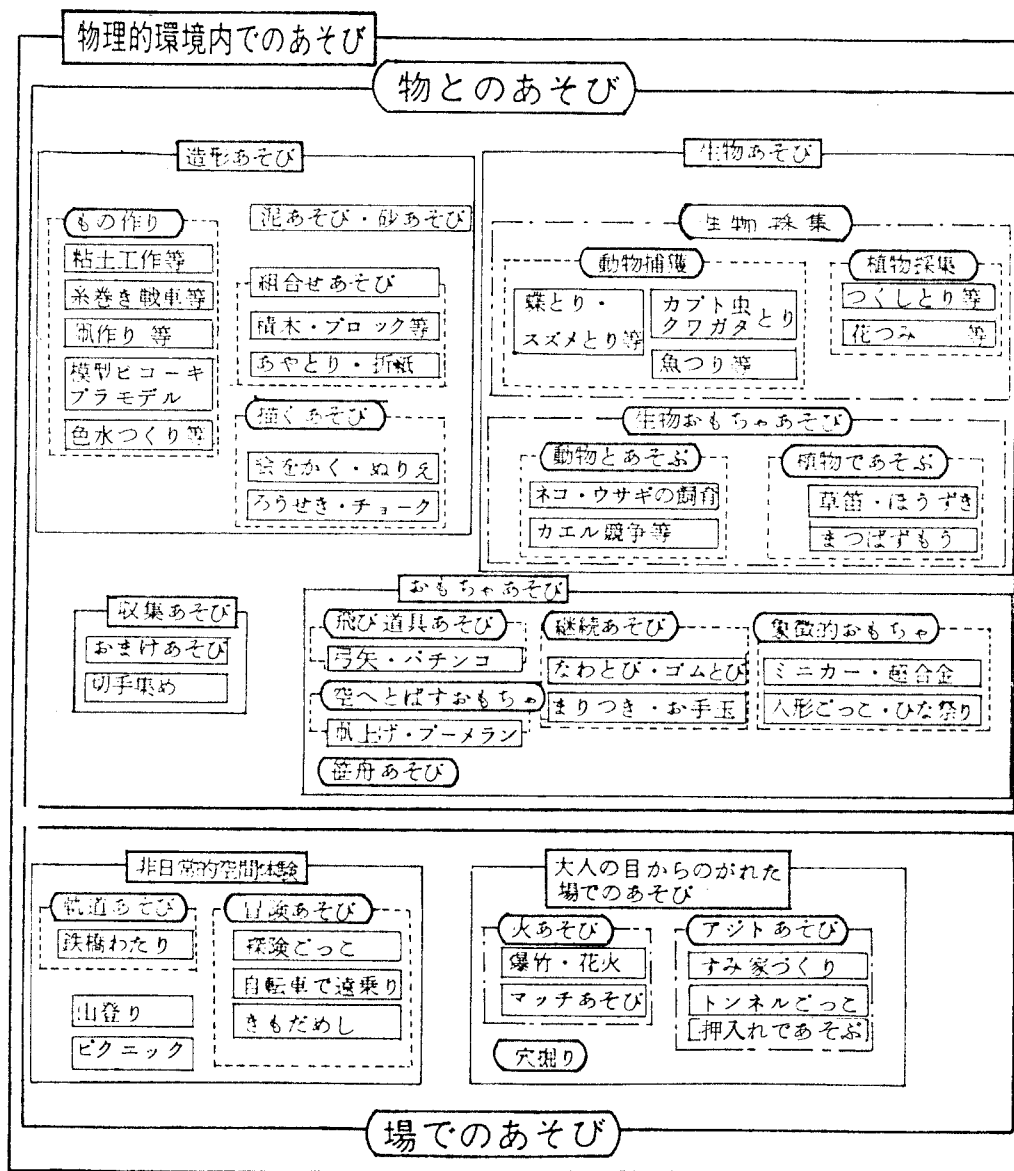 物理的環境内でのあそび
物とのあそび
造形あそび
もの作り
粘土工作等
糸巻き戦車等
凧作り 等
模型ヒコーキ
プラモデル
色水つくり等
泥あそび・砂あそび
組合せあそび
積木・ブロック等
あやとり・折紙
描くあそび
絵をかく・ぬりえ
ろうせき・チョーク
生物あそび
生物採集
動物捕獲
蝶とり・
スズメとり等
カブト虫
クワガタとり
魚つり等
植物採集
つくしとり等
花つみ 等
生物おもちゃあそび
動物とあそぶ
ネコ・ウサギの飼育
カエル競争等
植物であそぶ
草笛・ほうずき
まつばずもう
収集あそび
おまけあそび
切手集め
おもちゃあそび
飛び道具あそび
弓矢・パチンコ
空へとばすおもちゃ
凧上げ・ブーメラン
笹舟あそび
継続あそび
なわとび・ゴムとび
まりつき・お手玉
象徴的おもちゃ
ミニカー・超合金
人形ごっこ・ひな祭り
非日常的空間体験
軌道あそび
鉄橋わたり
山登り
ピクニック
冒険あそび
探険ごっこ
自転車で遠乗り
きもだめし
大人の目からのがれた
場でのあそび
火あそび
爆竹・花火
マッチあそび
穴掘り
アジトあそび
すみ家づくり
トンネルごっこ
押入れであそぶ
場でのあそび